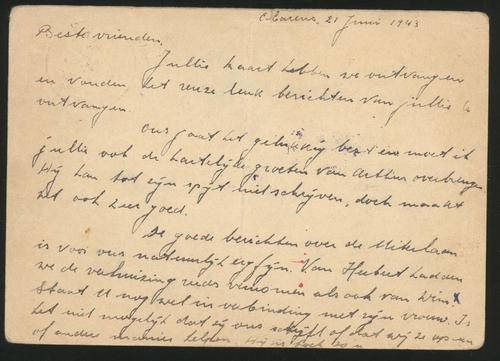 Clarens, 21 Juni 1943
Beste vrienden,
Jullie kaart hebben we ontvangen
en vonden het reuze leuk berichten van jullie te
ontvangen.
Ons gaat het gelukkig best en moet ik
jullie ook de hartelijke groeten van Arthur overbrengen
Hij kan tot zijn spijt niet schrijven, doch maakt
het ook zeer goed.
De goede berichten over de
is voor ons natuurlijk erg fijn. Van Herbert hadden
we de verhuizing reeds vernomen als ook van Wim.
Staat U nog wel in verbinding met zijn vrouw. Is
het niet mogelijk dat zij ons schrijft of dat wij ze op een
of andere manier helpen. Hij is